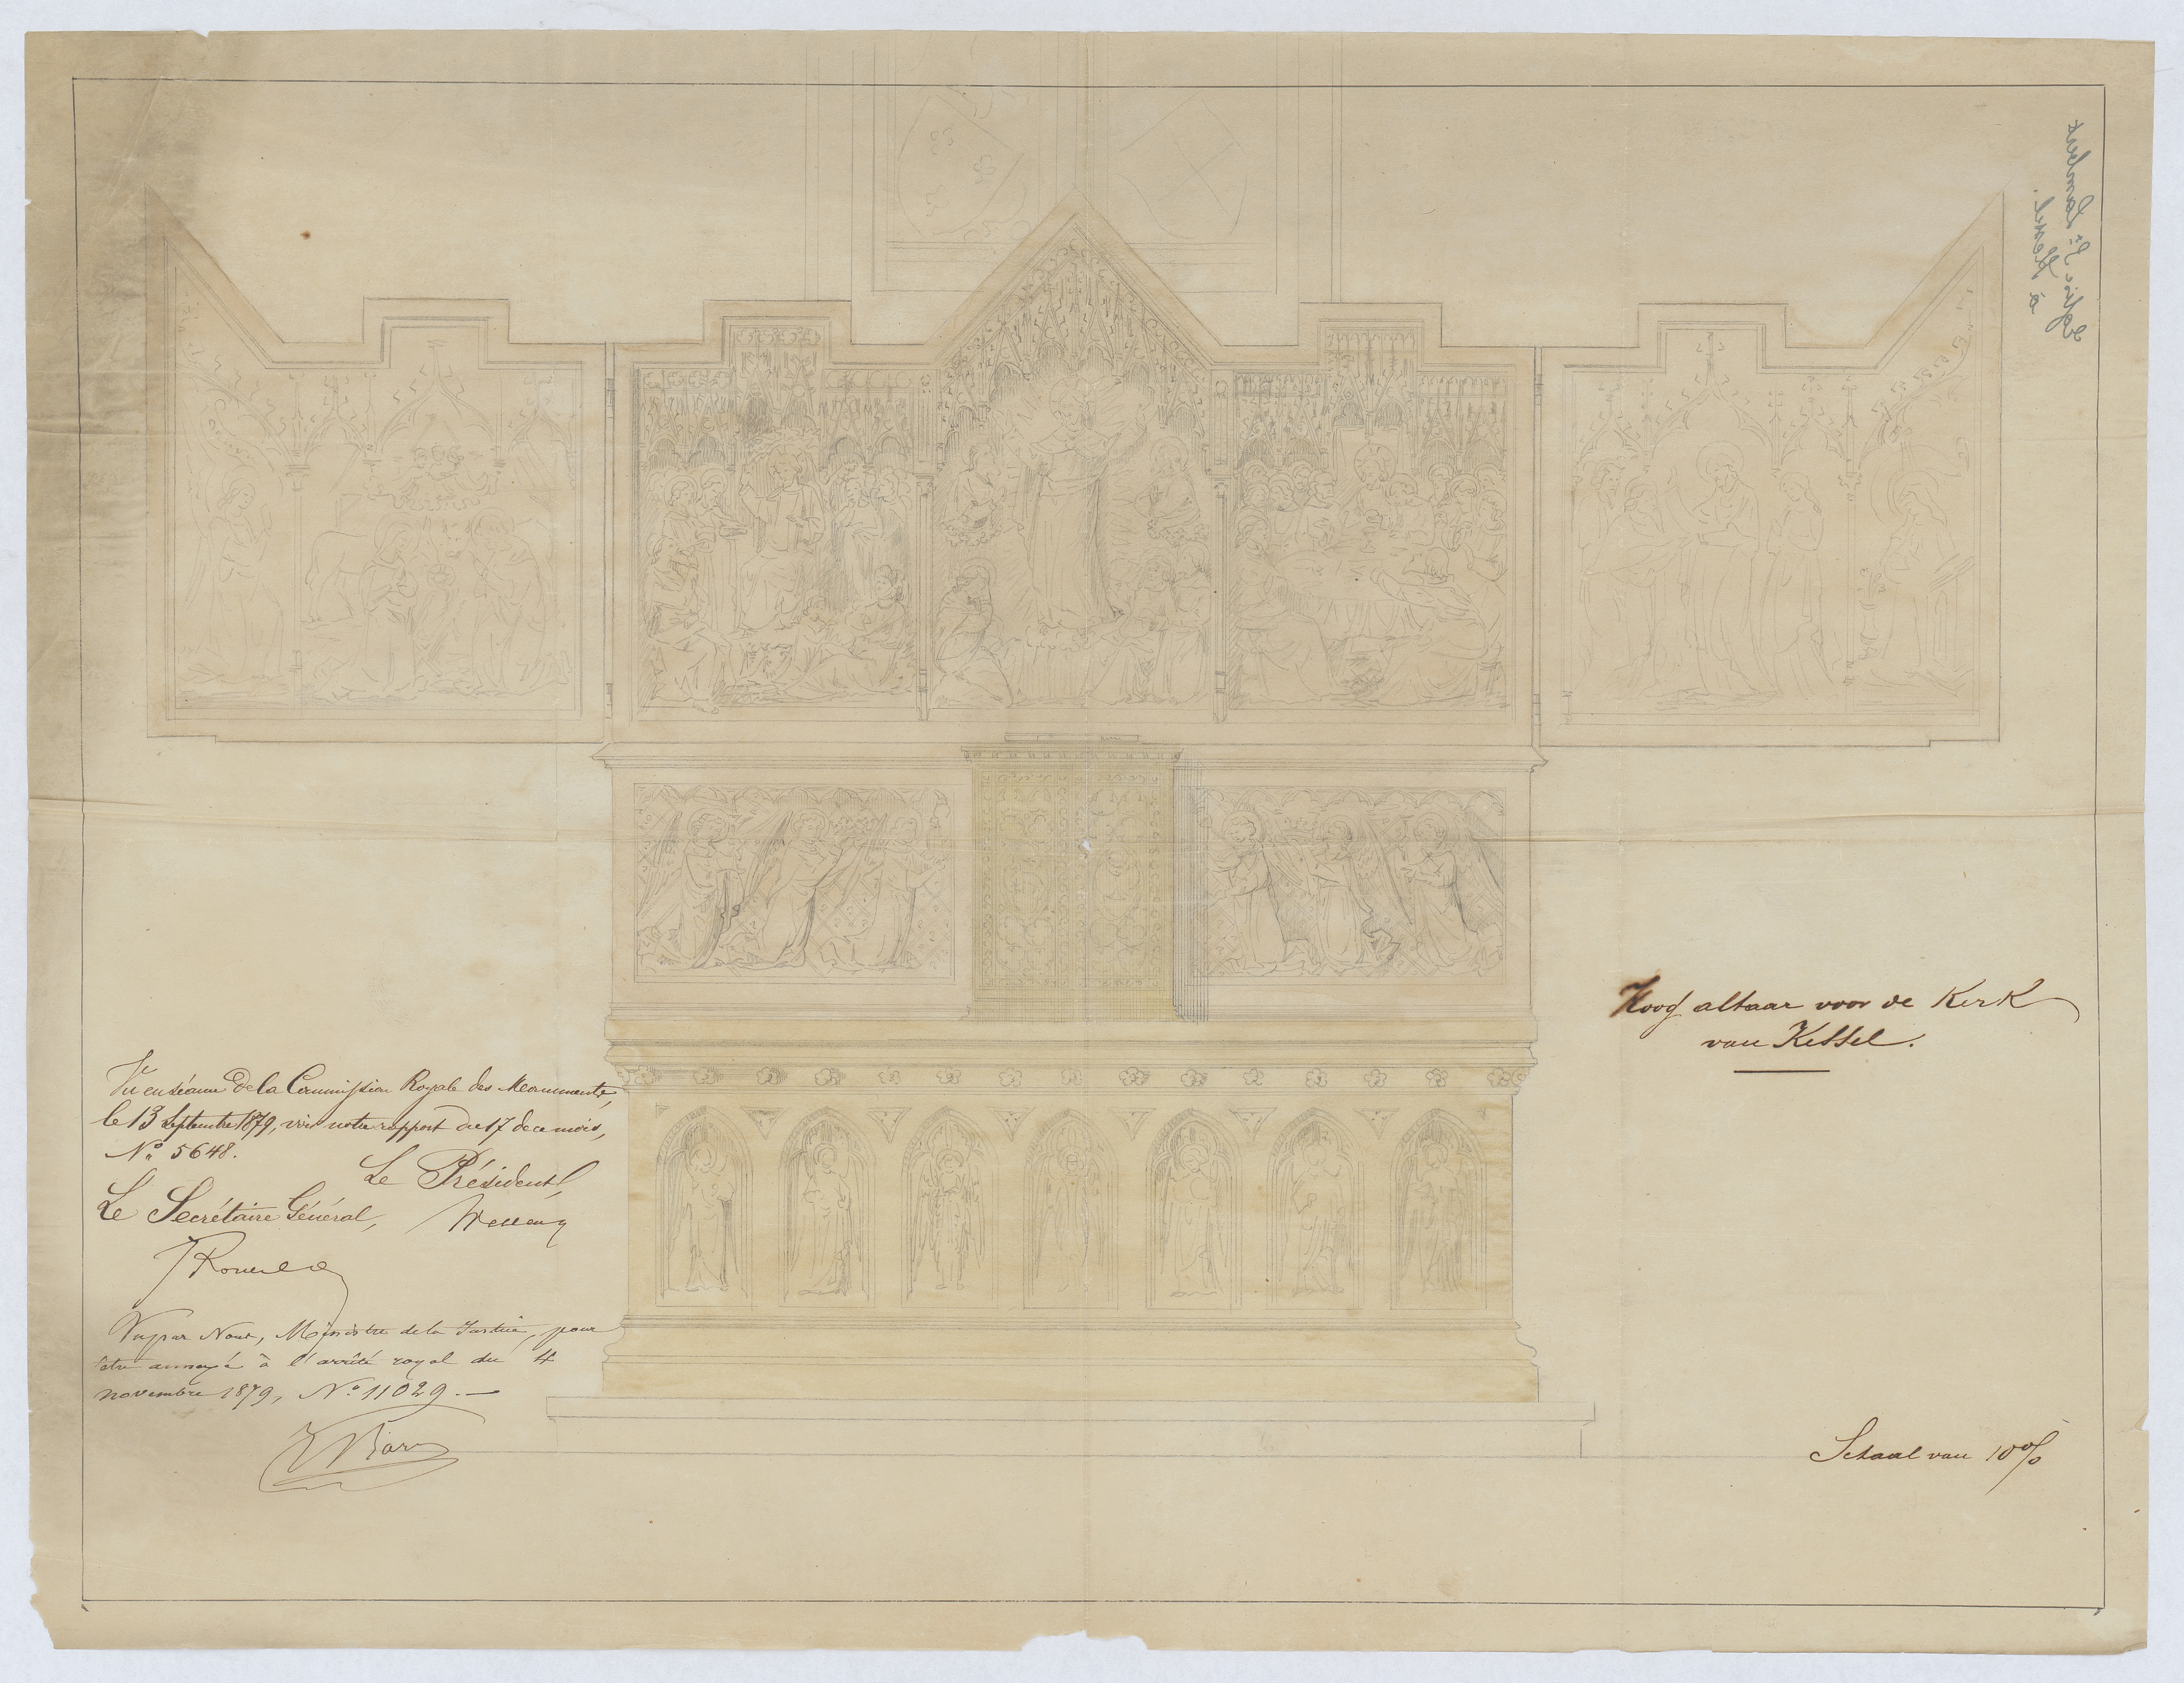 Eglise St. Lambert
à Kessel.
Hoog altaar voor de Kerk
van Kessel.
Vu en séance de la Commission Royale des Monuments,
le 13 Septembre 1879, voir notre rapport du 17 de ce mois,
No. 5648.
Le Président,
Le Secrétaire Général,
Wellens
JRousseau
Vu par Nous, Ministre de la Justice, pour
être annexé à l'arrêté royal du 4
novembre 1879, No. 11029. —
JBara
Schaal van 10%